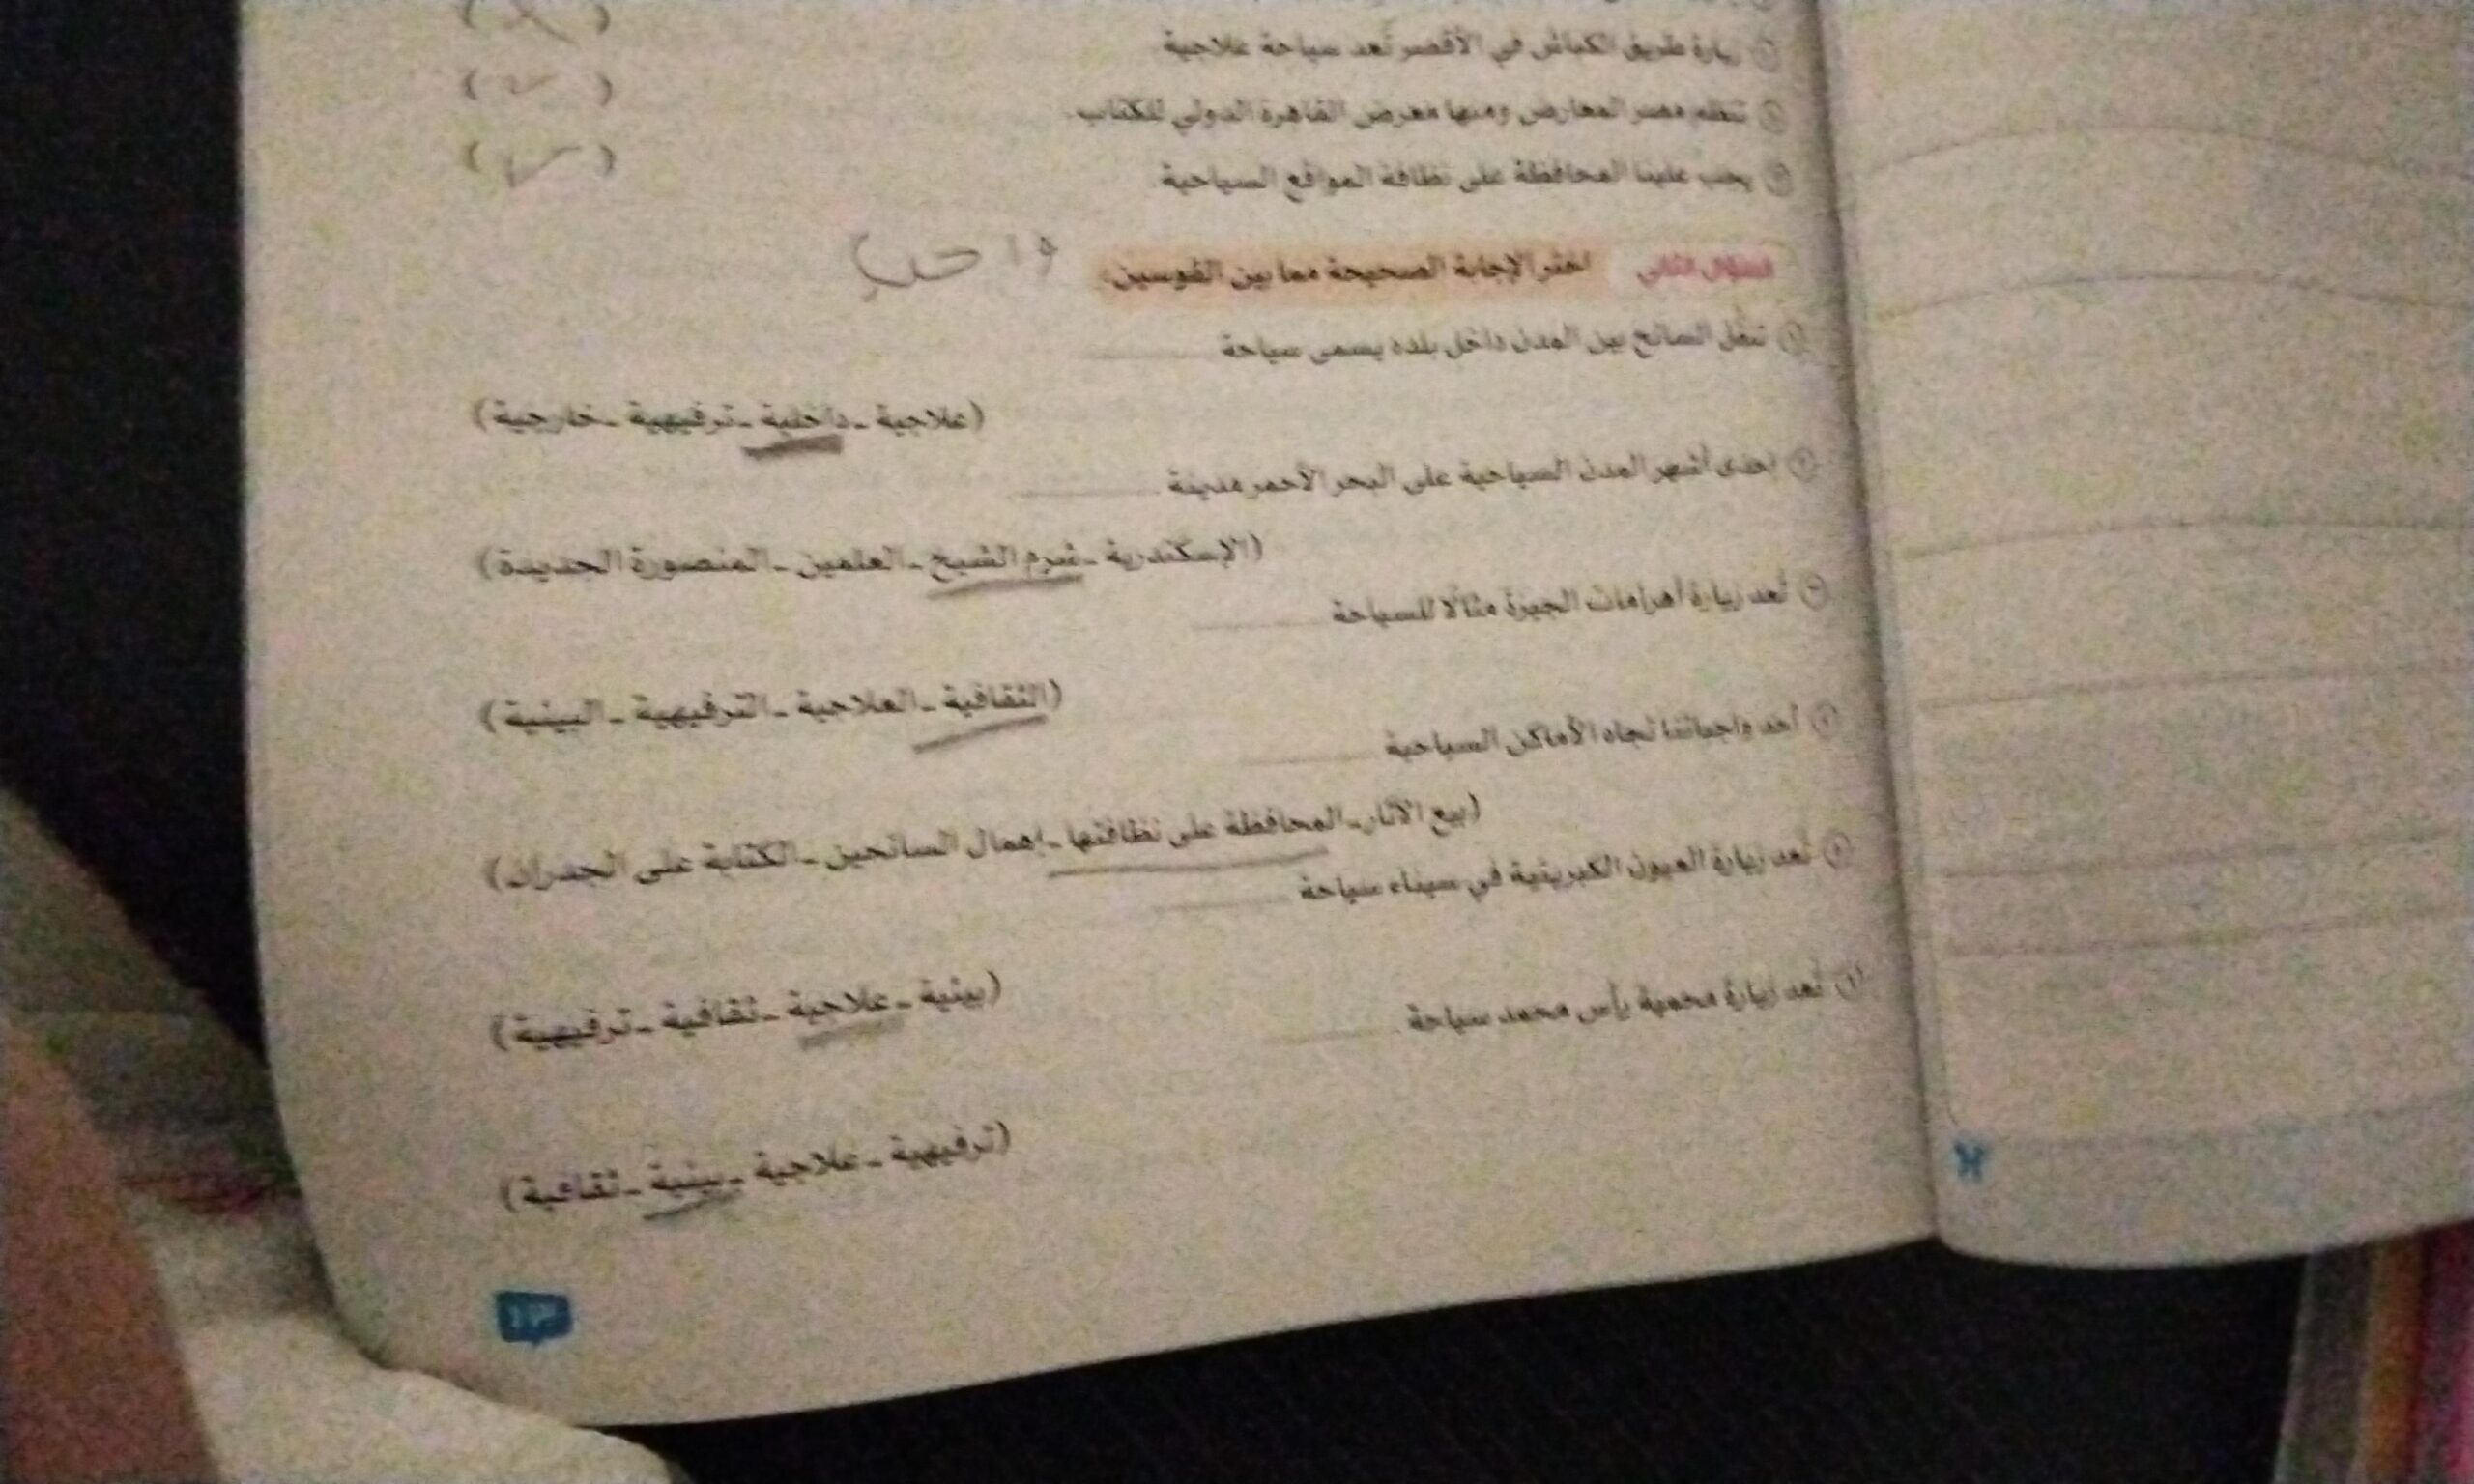 زيارة طريق الكباش في الأقصر تُعد سياحة علاجية. ( X )
تنظم مصر المعارض ومنها معرض القاهرة الدولي للكتاب. ( ✓ )
يجب علينا المحافظة على نظافة المواقع السياحية. ( ✓ )
السؤال الثاني اختر الإجابة الصحيحة مما بين القوسين: واحد
١ تنقُّل السائح بين المدن داخل بلده يسمى سياحة
(علاجية - داخلية - ترفيهية - خارجية)
٢ إحدى أشهر المدن السياحية على البحر الأحمر مدينة
(الإسكندرية - شرم الشيخ - العلمين - المنصورة الجديدة)
٣ تُعد زيارة أهرامات الجيزة مثالًا للسياحة
(الثقافية - العلاجية - الترفيهية - البيئية)
٤ أحد واجباتنا تجاه الأماكن السياحية
(بيع الآثار - المحافظة على نظافتها - إهمال السائحين - الكتابة على الجدران)
٥ تُعد زيارة العيون الكبريتية في سيناء سياحة
(بيئية - علاجية - ثقافية - ترفيهية)
٦ تُعد زيارة محمية رأس محمد سياحة
(ترفيهية - علاجية - بيئية - ثقافية)